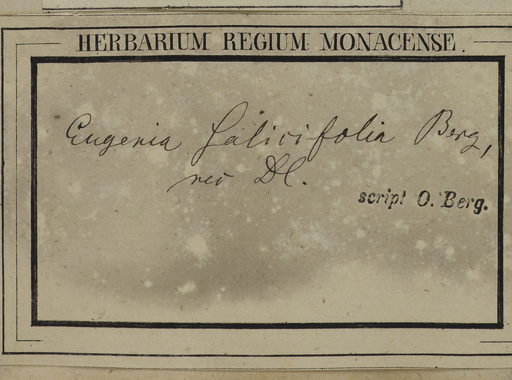 HERBARIUM REGIUM MONACENSE.
Eugenia salicifolia Berg,
nec DC.
script O. Berg.